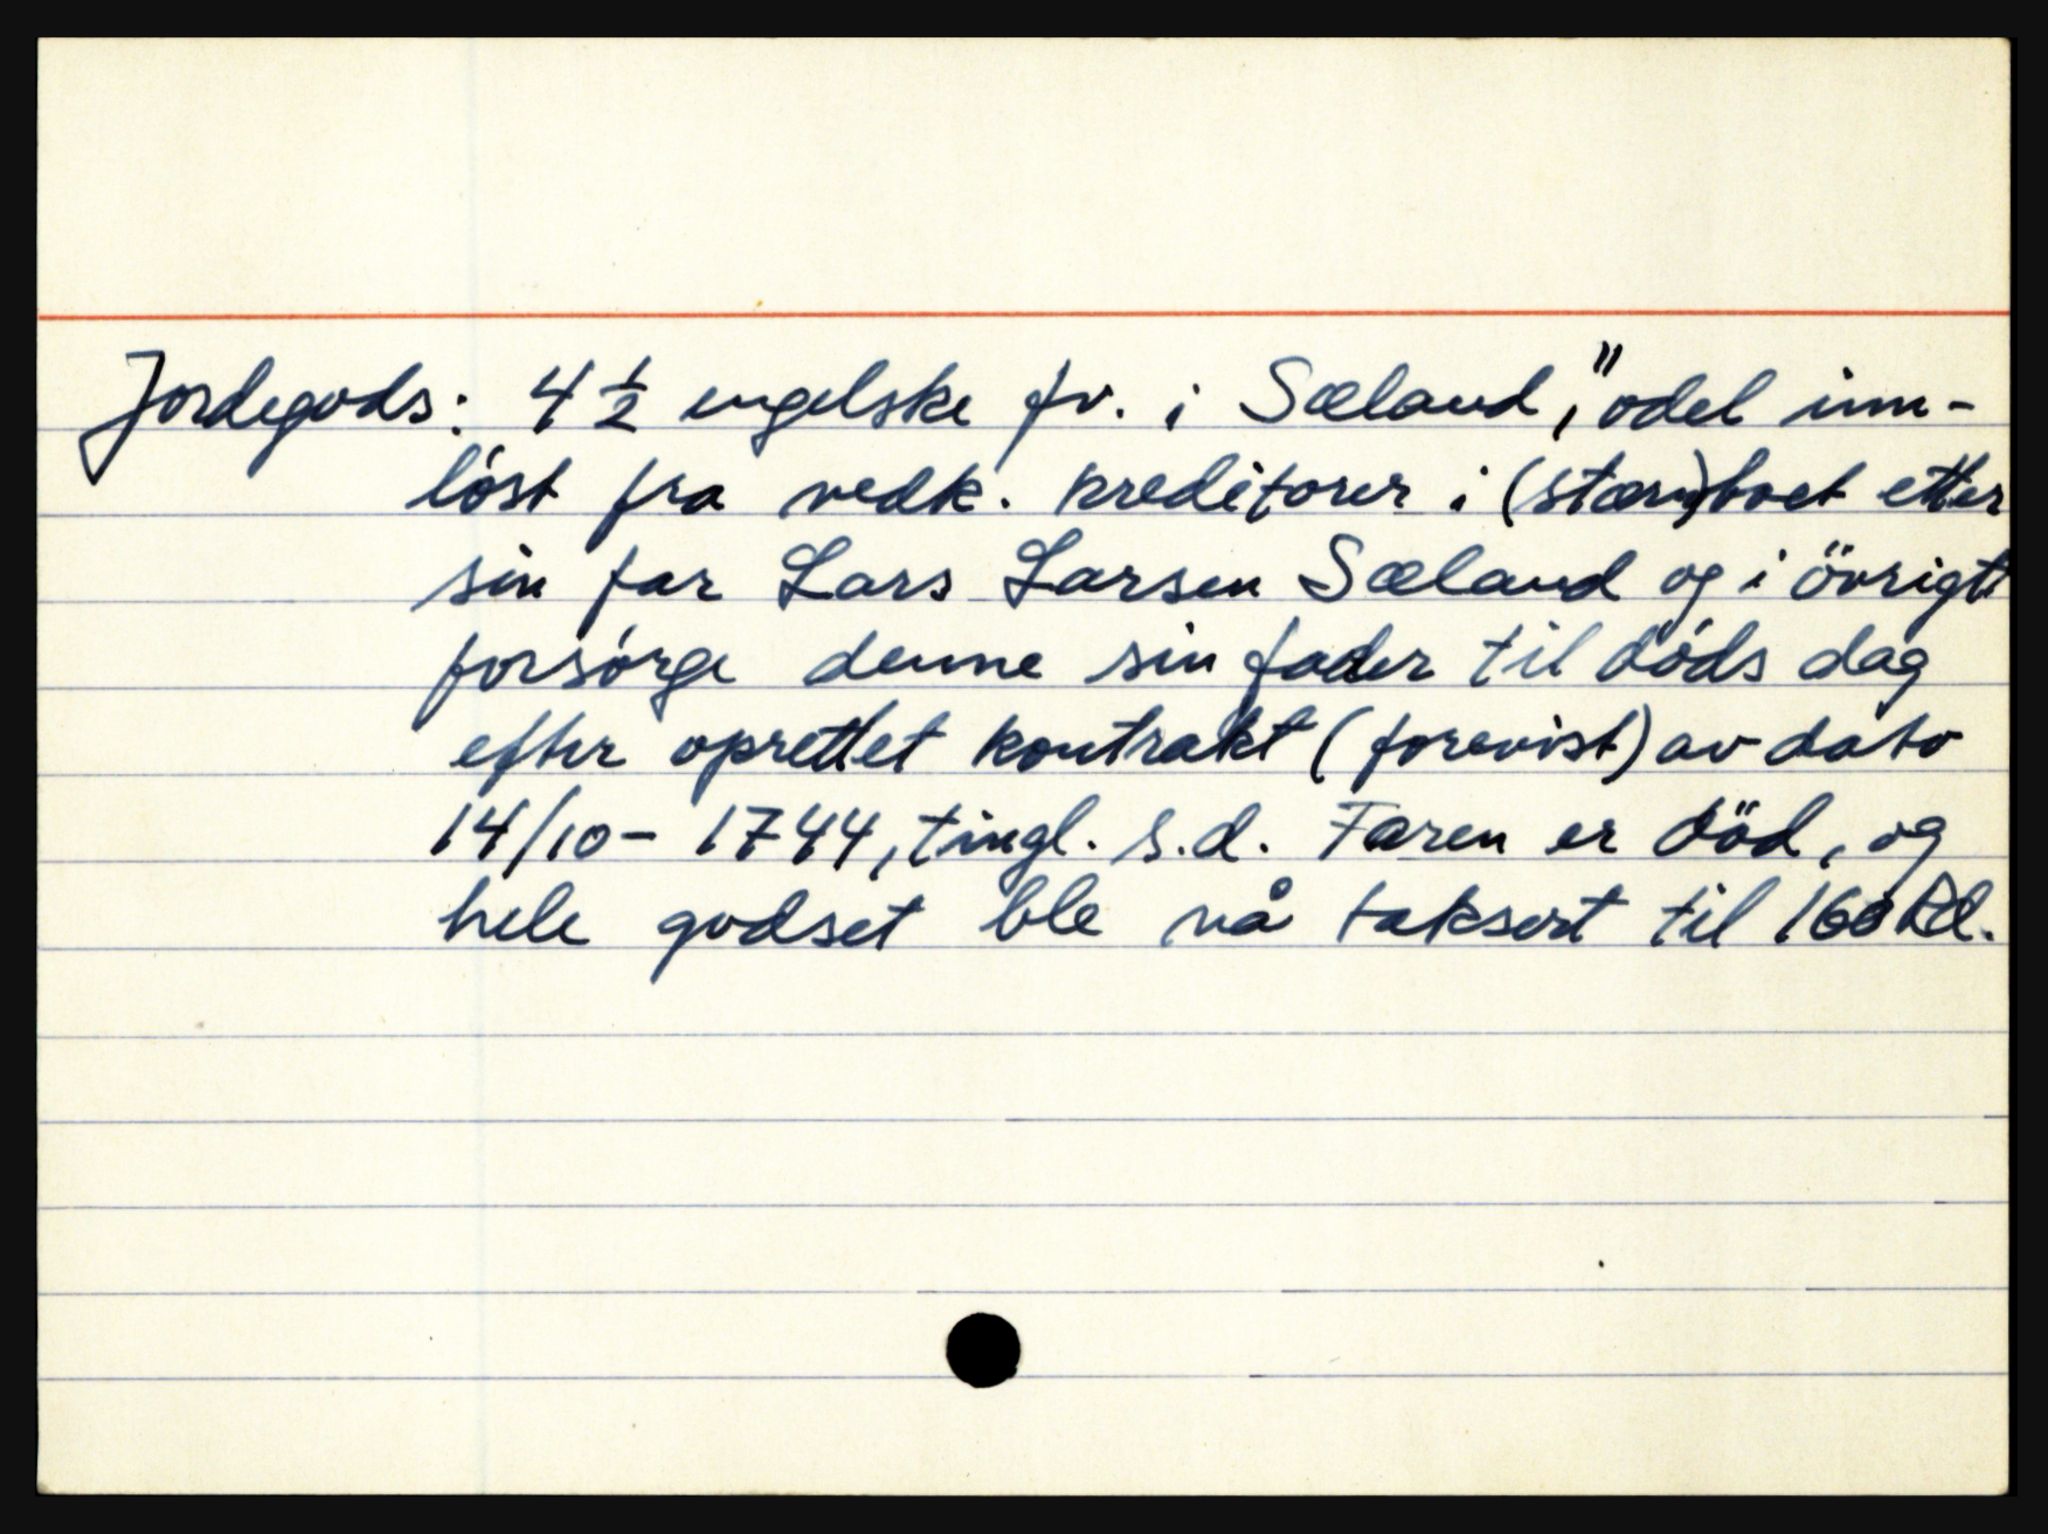 Jordegods: 4 ½ engelske fv. i Sæland, "odel inn-
löst fra vedk. kreditorer i (stærv)boet etter
sin far Lars Larsen Sæland og i övrigt
forsörge denne sin fader til döds dag
efter oprettet kontrakt (forevist) av dato
14/10- 1744, tingl. s.d. Faren er död, og
hele godset ble nå taksert til 160 Rd.